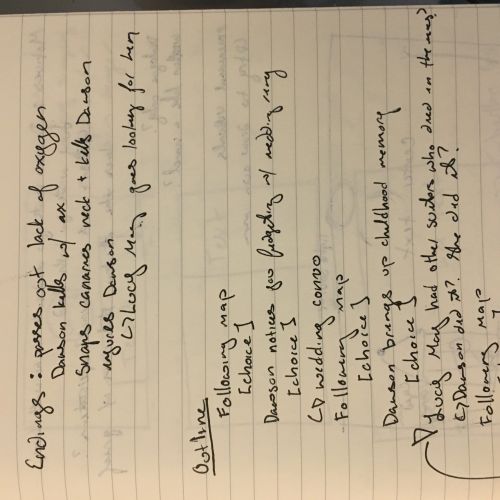 Endings: passes out lack of oxygen
Dawson kills w/ ax
Snaps canaries neck + kills Dawson
injures Dawson
↳ Lucy May goes looking for him
Outline
Following map
[choice]
Dawson notices you fidgeting w/ wedding ring
[choice]
↳ wedding convo
Following map
[choice]
Dawson brings up childhood memory
[choice]
Lucy May had other suitors who died in the
↳ Dawson did it? She did it?
Following map